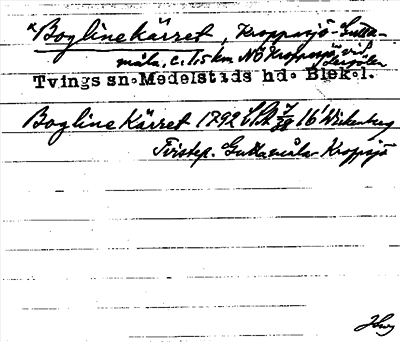 × Boglinekärret, Kroppsjö-Gutta-
måla, c. 1.5 km NÖ Kroppsjö, vid
Tvings sn. Medelstads hd. Blek.l.
Boglinekärret 1792 16¹ Wickenberg
Tvistep. Guttamåla-Kroppsjö